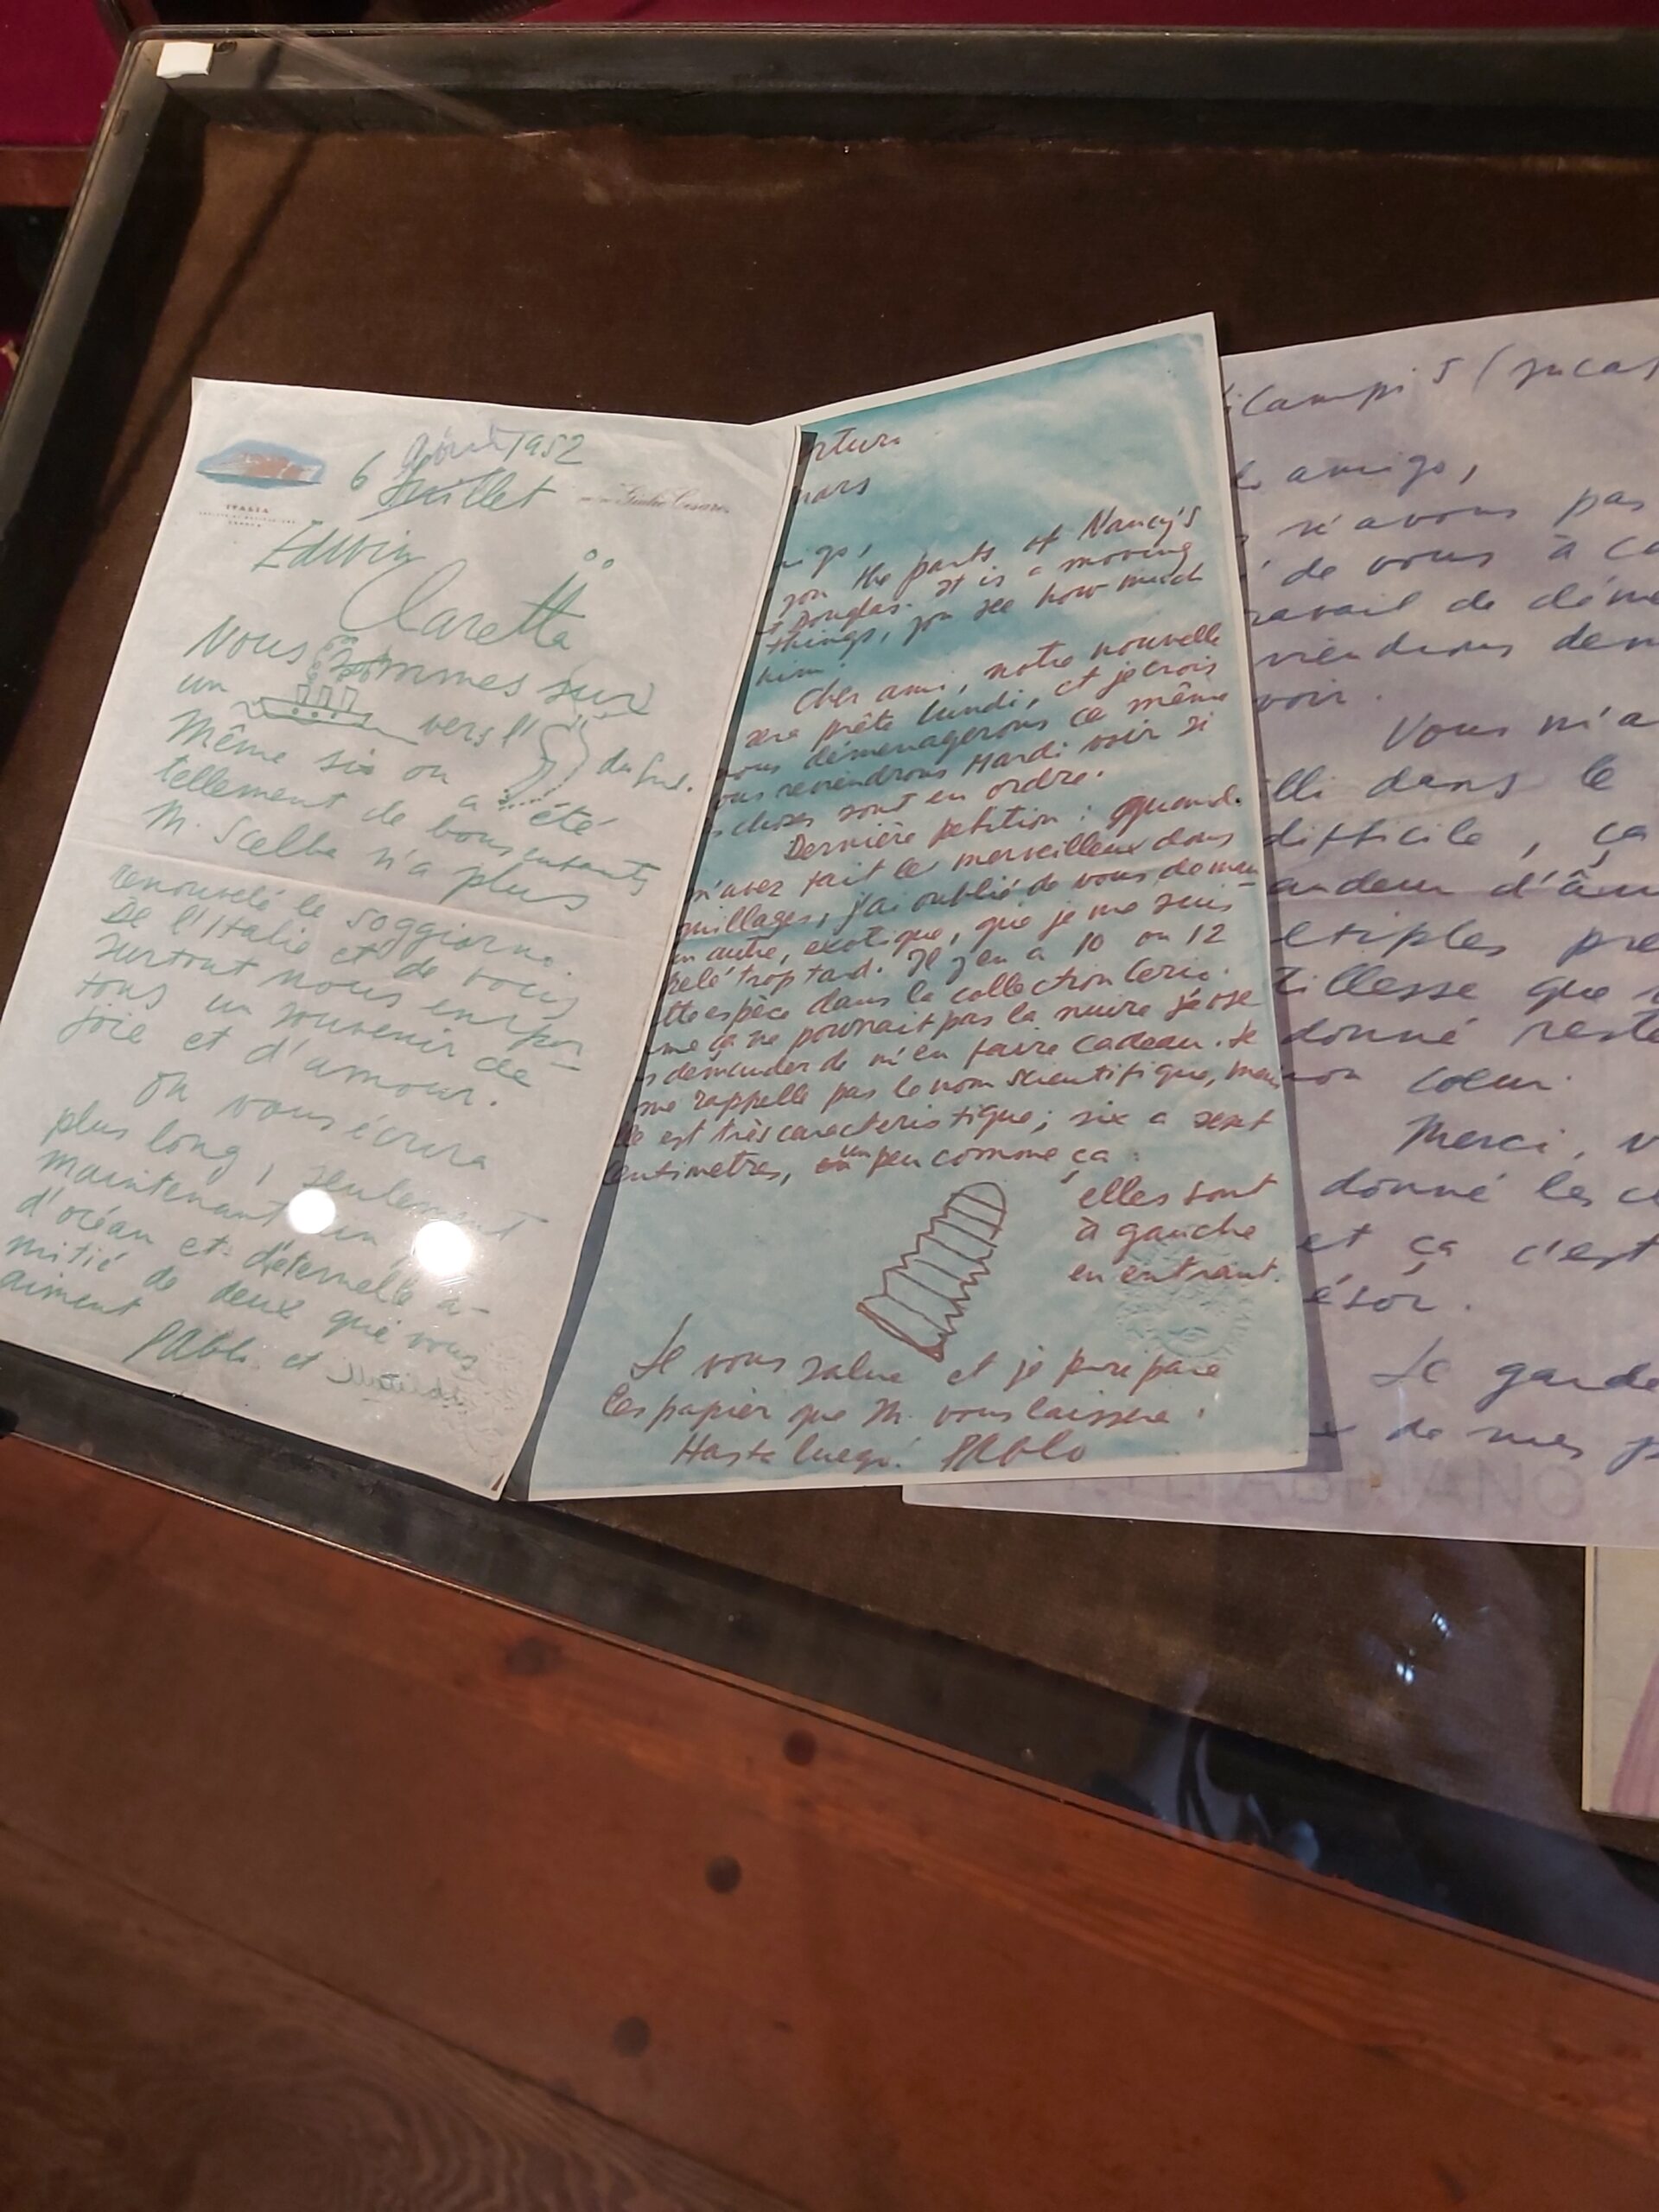 6 Juillet Août 1952
ITALIA
Giulio Cesare
Edwin
Claretta
Nous sommes sur
un vers l' du Sud.
Même six on a été
tellement de bons enfants
M. Scelba n'a plus
renouvelé le soggiorno.
De l'Italie et de vous
surtout nous empor-
tons un souvenir de
joie et d'amour.
On vous écrira
plus long, seulement
maintenant un
d'océan et d'éternelle a-
mitié de deux que vous
aiment
PAblo et Matilde
rturo
mars
igo,
you the parts of Nancy's
t Douglas. It is a moving
things, you see how much
him.
Cher ami, notre nouvelle
sera prête lundi, et je crois
nous déménagerons ce même
ous reviendrons Mardi soir si
s choses sont en ordre.
Dernière petition : quand
m'avez fait le merveilleux dons
quillages, j'ai oublié de vous deman-
un autre, exotique, que je me suis
pelé trop tard. Il y en a 10 ou 12
tte espèce dans la collection Cerio.
me ça ne pourrait pas la nuire j'ose
s demander de m'en faire cadeau. Je
me rappelle pas le nom scientifique, mais
le est très caracteristique; six a sept
centimetres, un peu comme ça :
elles sont
à gauche
en entrant.
Je vous salue et je prepare
les papier que M. vous laissera.
Hasta luego! PAblo
iCampi 5 (
amigo,
n'avons pas
de vous à
ravail de démé
viendrons dem
voir.
Vous m'a
illi dans le
difficile, ça
andeur d'âm
ltiples pre
tillesse que
donné reste
mon coeur.
Merci, v
donné les
et ça c'est
ésor.
Je garde
de mes p